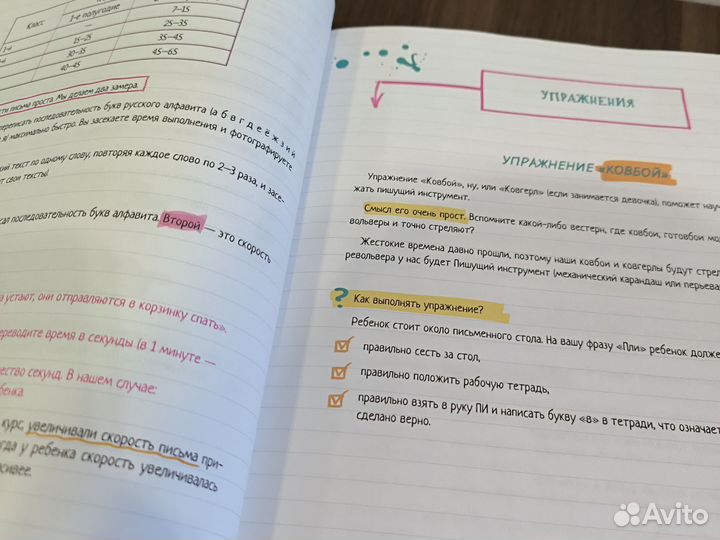 Класс
1-е полугодие
7–15
—
25–35
1-й
15–25
35–45
30–35
45–65
40–45
сти письма проста. Мы делаем два замера.
переписать последовательность букв русского алфавита (а б в г д е ё ж з и й
я) максимально быстро. Вы засекаете время выполнения и фотографируете
текст по одному слову, повторяя каждое слово по 2–3 раза, и засе-
т свои тексты).
сал последовательность букв алфавита. Второй — это скорость
а устают, они отправляются в корзинку спать».
ереводите время в секунды (в 1 минуте —
чество секунд. В нашем случае:
бенка.
курс, увеличивали скорость письма при-
огда у ребенка скорость увеличивалась
сивее.
УПРАЖНЕНИЯ
УПРАЖНЕНИЕ «КОВБОЙ»
Упражнение «Ковбой», ну, или «Ковгерл» (если занимается девочка), поможет нау
жать пишущий инструмент.
Смысл его очень прост. Вспомните какой-либо вестерн, где ковбои, готовбои мо
вольверы и точно стреляют?
Жестокие времена давно прошли, поэтому наши ковбои и ковгерлы будут стрел
револьвера у нас будет Пишущий инструмент (механический карандаш или перьева
? Как выполнять упражнение?
Ребенок стоит около письменного стола. На вашу фразу «Пли» ребенок долже
правильно сесть за стол,
правильно положить рабочую тетрадь,
правильно взять в руку ПИ и написать букву «в» в тетради, что означает
сделано верно.
Avito